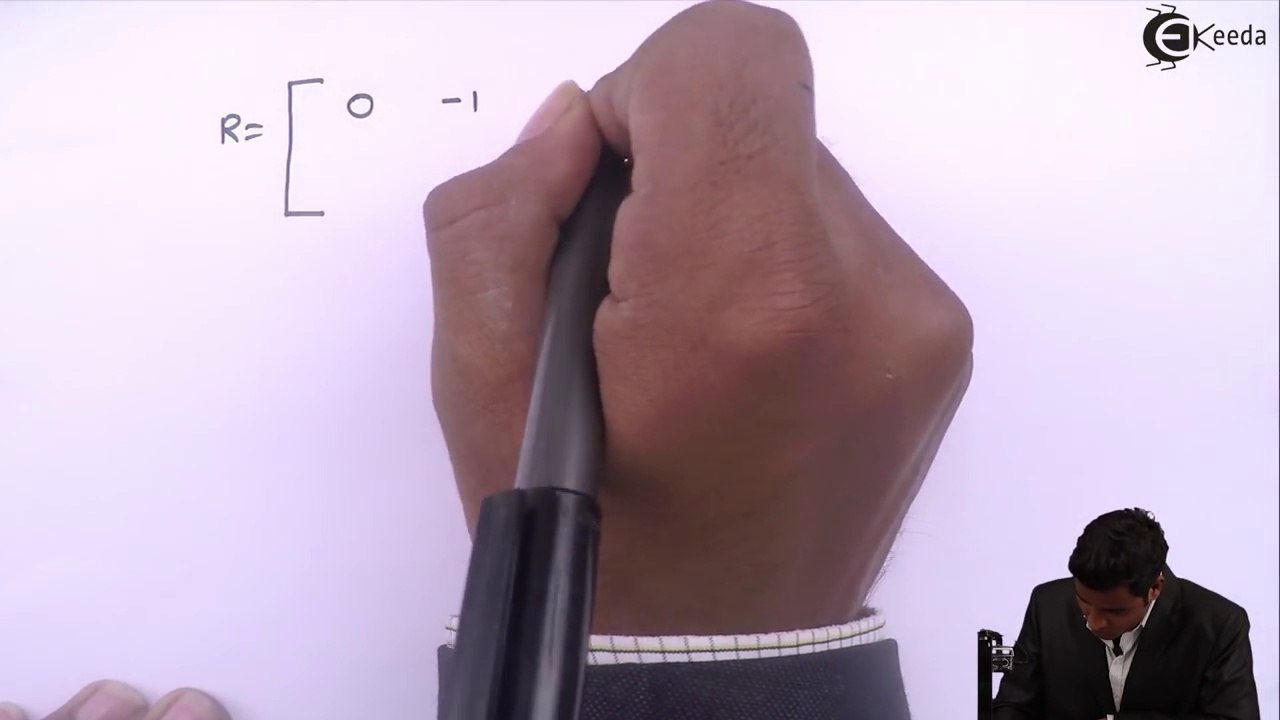 EKeeda
R= [ 0 -1